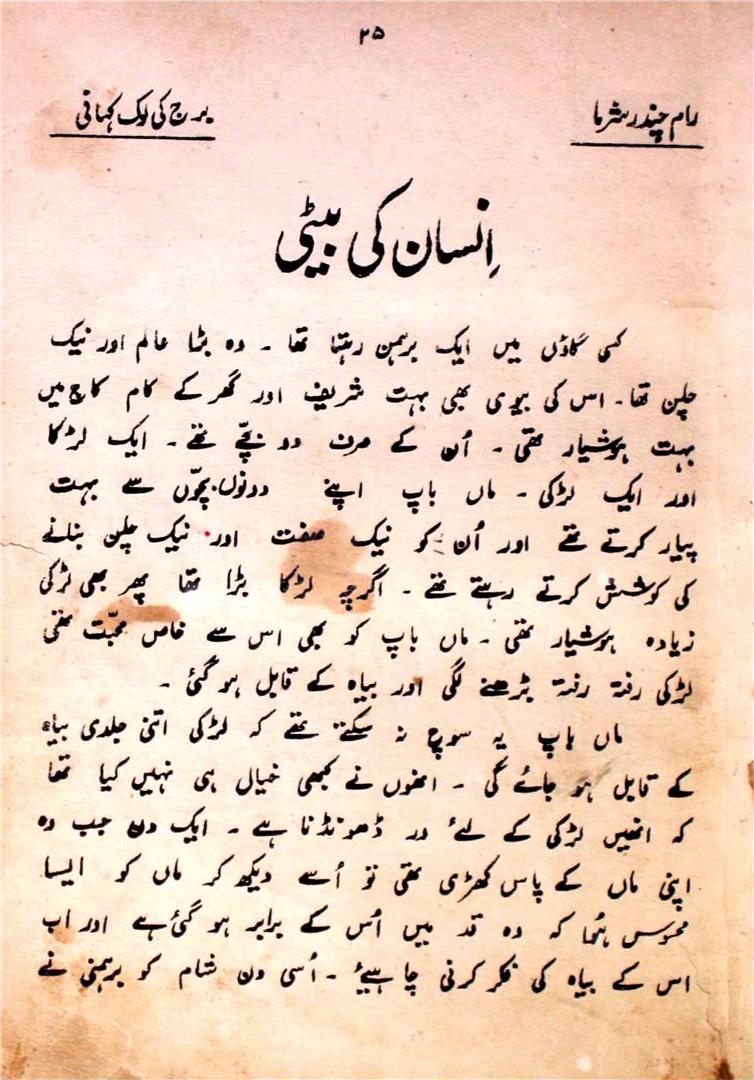 ۲۵
رام چندر شرما
برج کی لوک کہانی
اِنسان کی بیٹی
کسی گاؤں میں ایک برہمن رہتا تھا ۔ وہ بڑا عالم اور نیک
چلن تھا ۔ اس کی بیوی بھی بہت شریف اور گھر کے کام کاج میں
بہت ہوشیار تھی ۔ اُن کے صرف دو بچّے تھے ۔ ایک لڑکا
اور ایک لڑکی ۔ ماں باپ اپنے دونوں بچّوں سے بہت
پیار کرتے تھے اور اُن کو نیک صفت اور نیک چلن بنانے
کی کوشش کرتے رہتے تھے ۔ اگرچہ لڑکا بڑا تھا پھر بھی لڑکی
زیادہ ہوشیار تھی ۔ ماں باپ کو بھی اس سے خاص محبّت تھی
لڑکی رفتہ رفتہ بڑھنے لگی اور بیاہ کے قابل ہو گئی ۔
ماں باپ یہ سوچ نہ سکتے تھے کہ لڑکی اتنی جلدی بیاہ
کے قابل ہو جائے گی ۔ انھوں نے کبھی خیال ہی نہیں کیا تھا
کہ انھیں لڑکی کے لئے ور ڈھونڈنا ہے ۔ ایک دن جب وہ
اپنی ماں کے پاس کھڑی تھی تو اُسے دیکھ کر ماں کو ایسا
محسوس ہُوا کہ وہ قد میں اُس کے برابر ہو گئی ہے اور اب
اس کے بیاہ کی فکر کرنی چاہیئے ۔ اُسی دن شام کو برہمنی نے